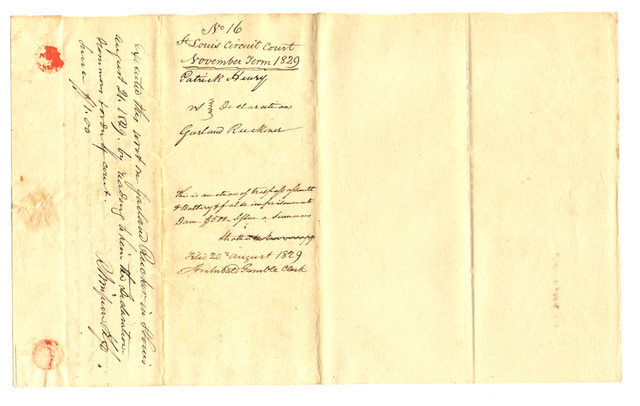 No 16
St Louis Circuit Court
November Term 1829
Patrick Henry
vs Declaration
Garland Ruckner
this is an action of trespass assault
& Battery & false imprisonment
Dam. $500 Issue a summons
Strother
Filed 20th august 1829
Archibald Gamble Clerk
Executed this writ on Garland Rucker in St Louis
August 21. 1829. by reading to him the Declaration
Summons & order of court.
$1.00